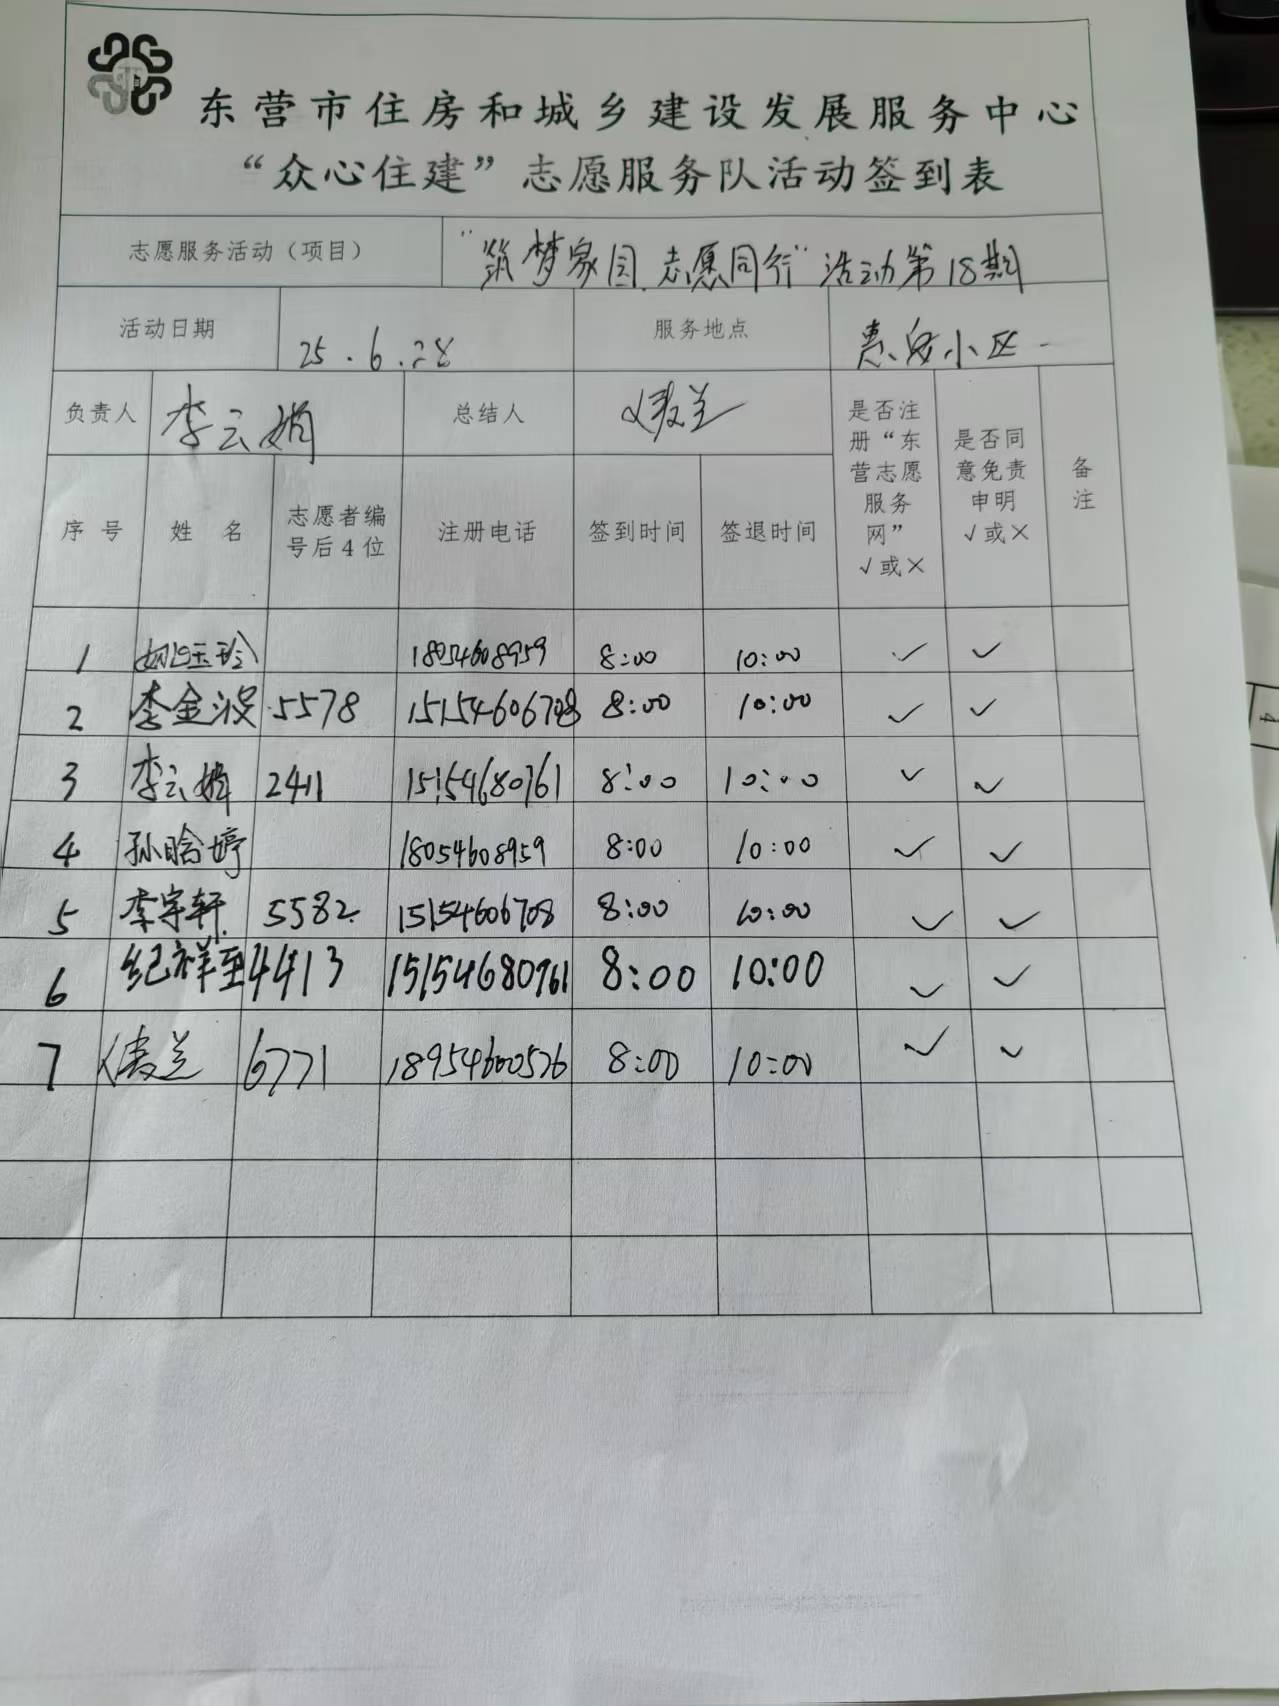 东营市住房和城乡建设发展服务中心
“众心住建”志愿服务队活动签到表
志愿服务活动（项目） “筑梦家园 志愿同行”活动第18期
活动日期 25.6.28 服务地点 惠安小区
负责人 李云娟 总结人 是否注册“东营志愿服务网”√或× 是否同意免责申明√或× 备注
序号 姓名 志愿者编号后4位 注册电话 签到时间 签退时间
1 玉玲 18054608959 8:00 10:00 ✓ ✓
2 李金波 5578 15154606708 8:00 10:00 ✓ ✓
3 李云娟 2411 15154680761 8:00 10:00 ✓ ✓
4 孙晗婷 18054608959 8:00 10:00 ✓ ✓
5 李宇轩 5582 15154606708 8:00 10:00 ✓ ✓
6 纪祥至 4413 15154680761 8:00 10:00 ✓ ✓
7 6771 18954600526 8:00 10:00 ✓ ✓